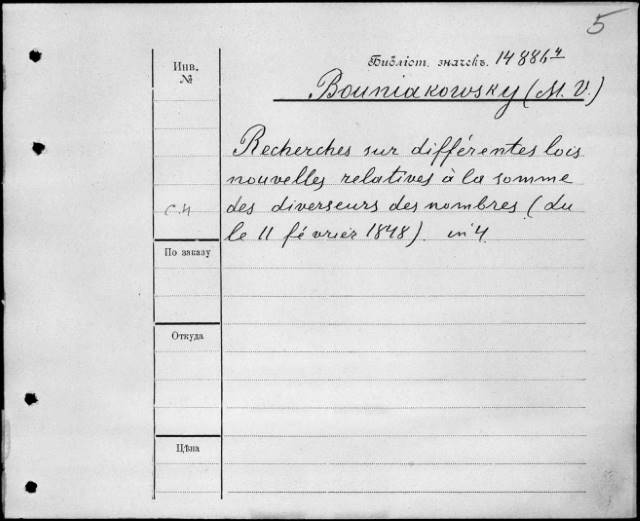 5
Инв. №
Библіот. значекъ. 14886⁴
Bouniakowsky (M. V.)
Recherches sur différentes lois
nouvelles relatives à la somme
des diverseurs des nombres (du
le 11 février 1848). in 4.
По заказу
Откуда
Цѣна